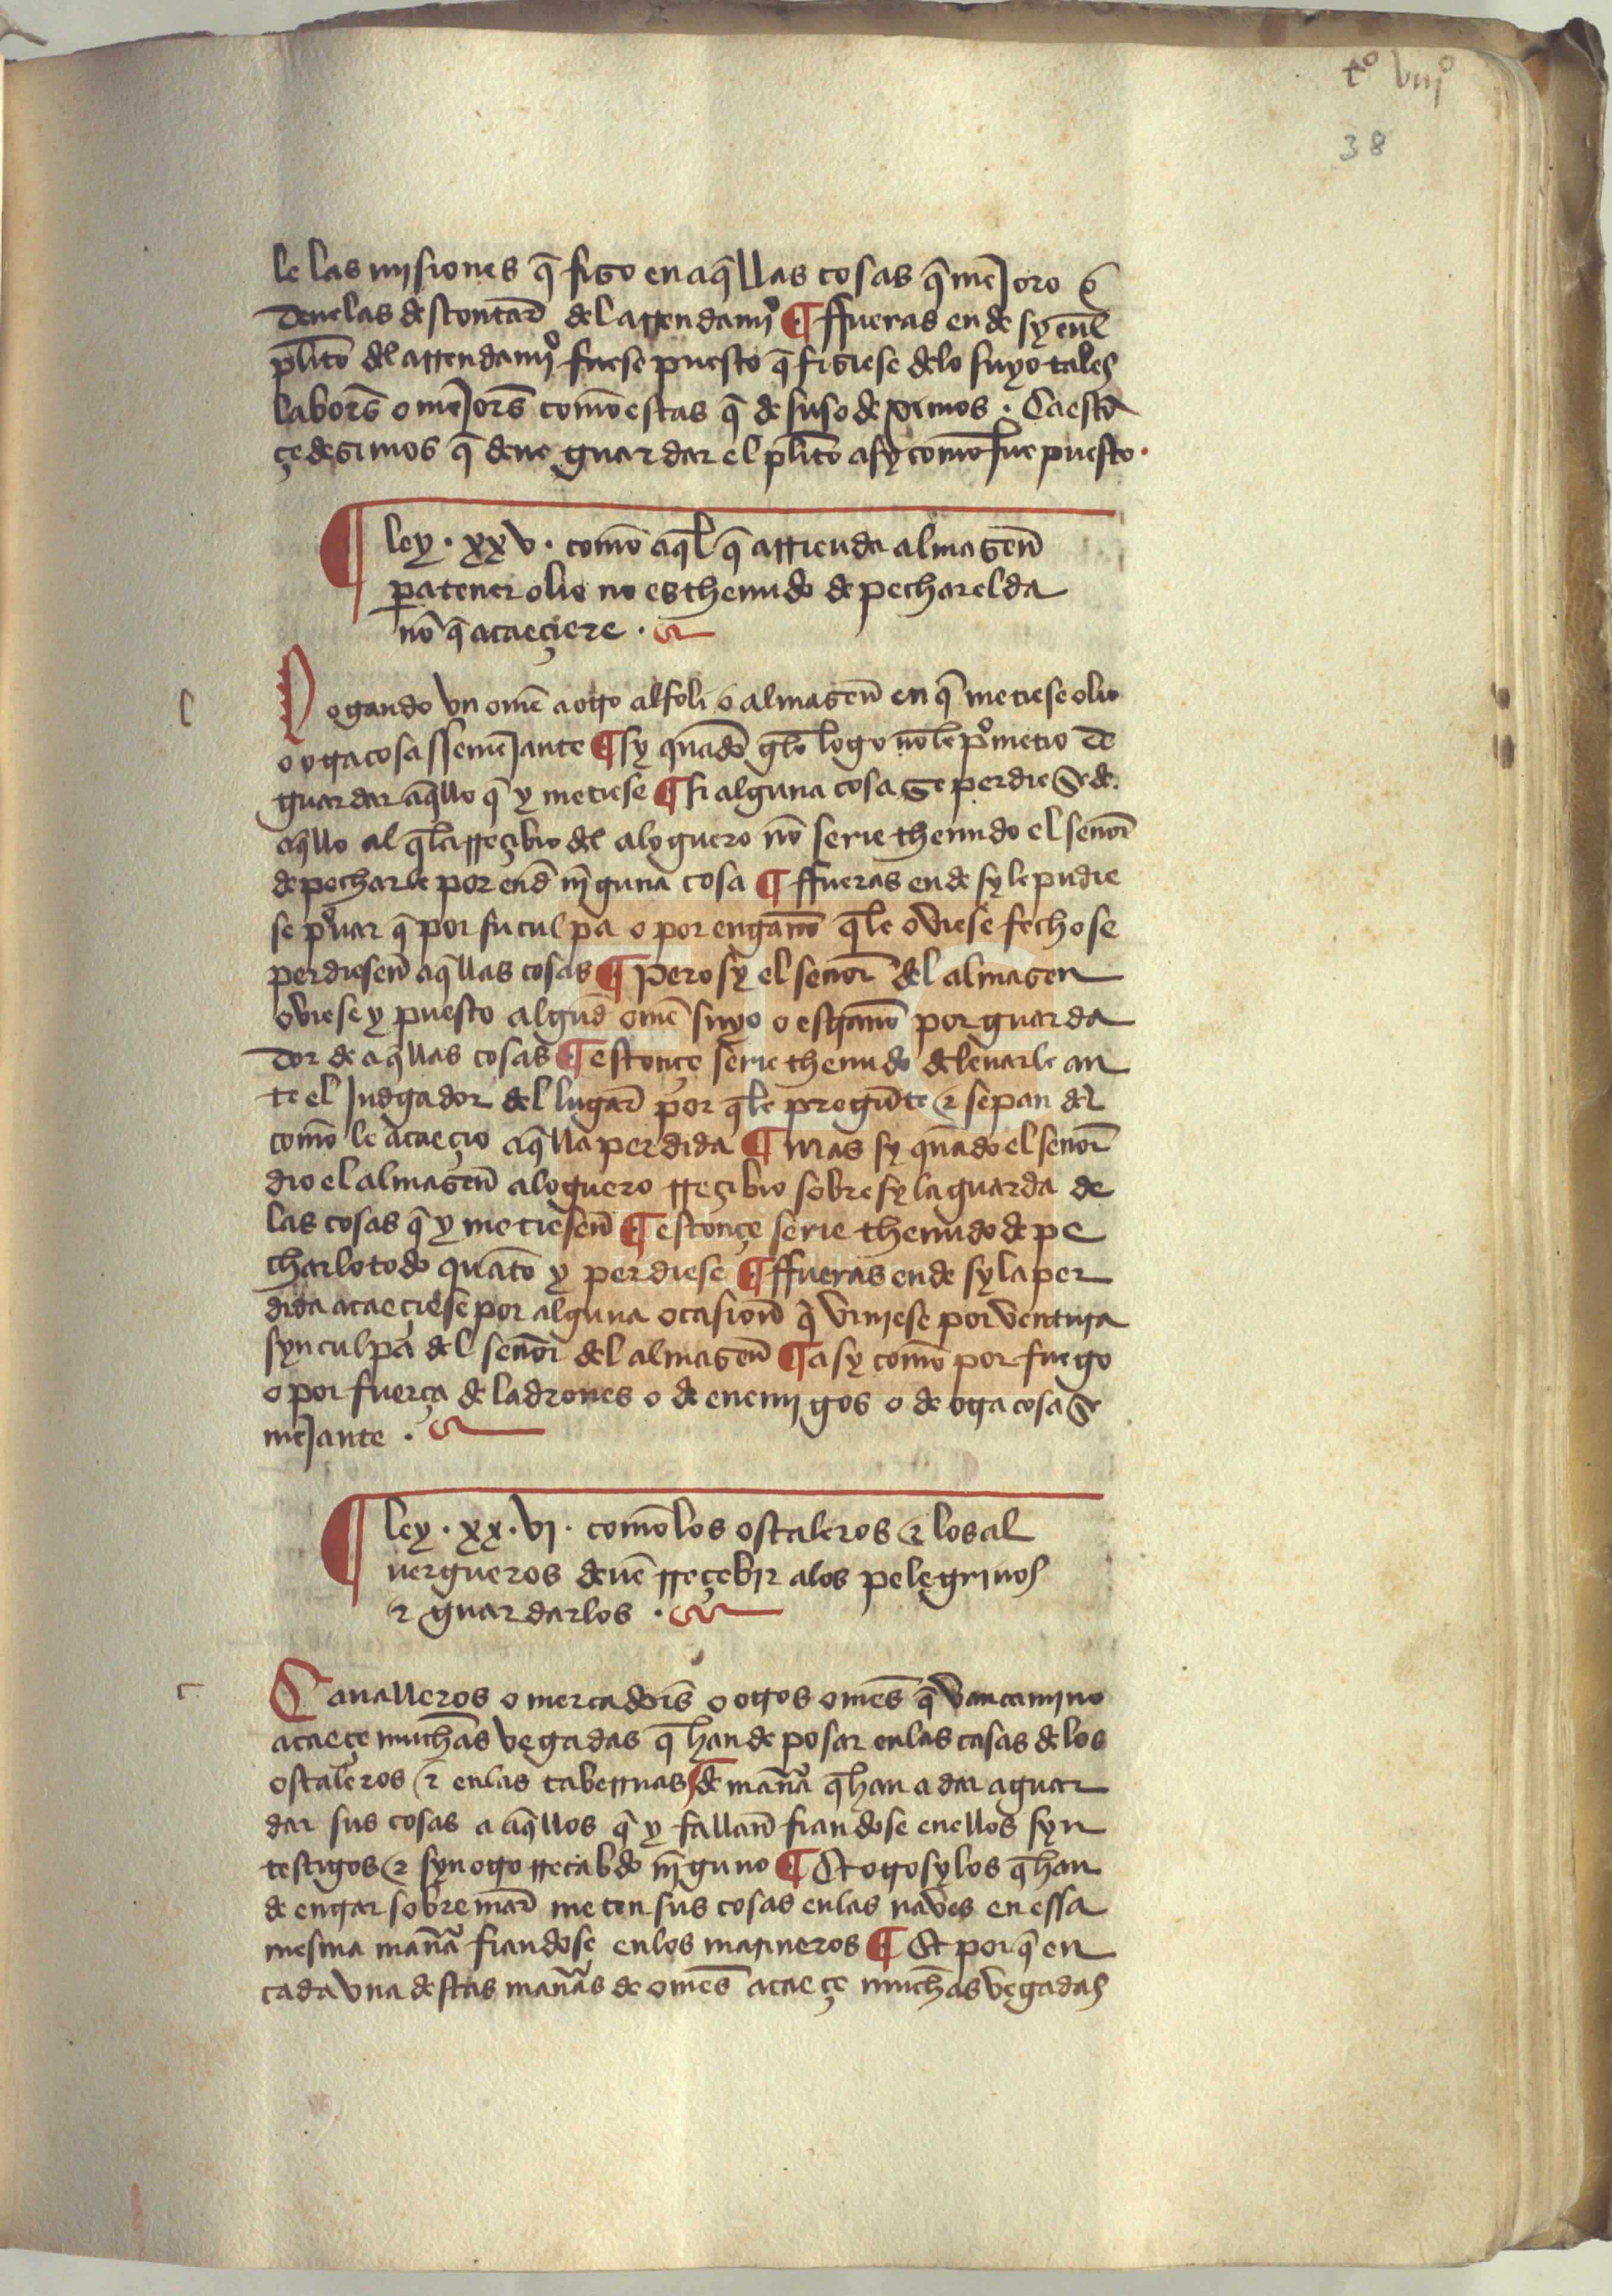 tº viijº
38
le las mjsiones q̃ fizo en aq̃llas cosas q̃ mẽjoro o
deue las descontar̃ del arrendamjº ¶ ffueras ende sy en̄l
pl̃ito del arrendamjº fuese puesto q̃ fiziese delo suyo tales
labor̃s o mẽjor̃s comõ estas q̃ de suso deximos . Ca estõ
çe dezimos q̃ deue guardar el pl̃ito asy comõ fue puesto .
¶ ley . xxv . comõ aq̃l q̃ arrienda almazen̄
pa tener olio no es thenudo de pechar el da
nõ q̃ acaeçiere .
Logando vn omẽ a otro alfoli o almazen̄ en q̃ metiese olio
o otra cosa ssemejante ¶ sy quãdo gelo logo nõ le pºmetio de
guardar aq̃llo q̃ y metiese ¶ si alguna cosa se perdiese de
aq̃llo al q̃ lo rresçibio del aloguero nõ serie thenudo el señor
de pecharle por end̃ nj̃guna cosa ¶ ffueras ende sy le pudie
se pºuar q̃ por su culpa o por engaño q̃ le oviese fecho se
perdiesen̄ aq̃llas cosas ¶ pero sy el señor del almazen
oviese y puesto algud̃ omẽ suyo o estraño por guarda
dor de aq̃llas cosas ¶ estonçe serie thenudo de leuarle an
te el Judgador del lugar̃ por q̃ le pregũte & sepan del
comõ le acaeçio aq̃lla perdida ¶ Mas sy quãdo el señor
dio el almazen̄ a loguero rreçibio sobre sy la guarda de
las cosas q̃ y metiesen̄ ¶ estonçe serie thenudo de pe
charlo todo quãto y perdiese ¶ ffueras ende sy la per
dida acaeçiese por alguna ocasion̄ q̃ viniese por ventura
syn culpa del señor del almazen̄ ¶ asy comõ por fuego
o por fuerça de ladrones o de enemjgos o de otra cosa se
mejante .
¶ ley . xx . vj . comõ los ostaleros & los al
uergueros deuẽ rreçebir alos pelegrinos
& guardarlos .
Caualleros o mercador̃s o otros omẽs q̃ van camino
acaeçe muchas vegadas q̃ han de posar enlas casas delos
ostaleros & enlas tabernas ¶ de mañã q̃ han a dar a guar
dar sus cosas a aq̃llos q̃ y fallan̄ fiandose enellos syn
testigos & syn otro rrecabdo nj̃guno ¶ Et otrosy los q̃ han
de entrar sobre mar̃ meten sus cosas enlas naves en essa
mesma mañã fiandose enlos marineros ¶ Et por q̃ en
cada vna destas mañãs de omẽs acaeçe muchas vegadas